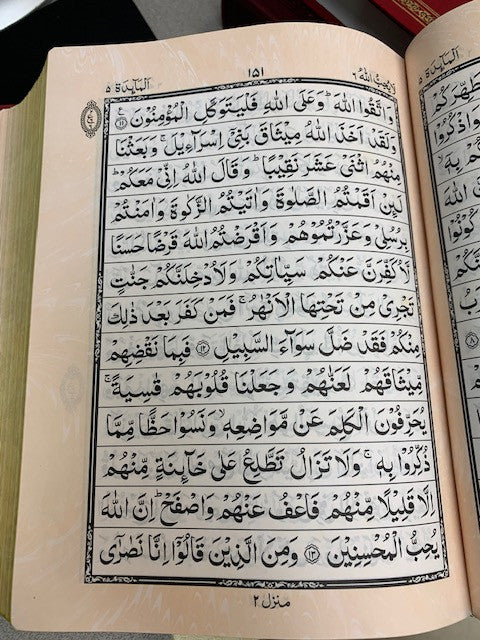 لَا يُحِبُّ اللهُ ٦
١٥١
اَلْمَآئِدَة ٥
وَاتَّقُوا اللهَ ؕ وَعَلَى اللهِ فَلْيَتَوَكَّلِ الْمُؤْمِنُوْنَ ۝١١
وَلَقَدْ اَخَذَ اللهُ مِيْثَاقَ بَنِيْٓ اِسْرَآءِيْلَ ۚ وَبَعَثْنَا
مِنْهُمُ اثْنَيْ عَشَرَ نَقِيْبًا ؕ وَقَالَ اللهُ اِنِّيْ مَعَكُمْ ؕ
لَئِنْ اَقَمْتُمُ الصَّلٰوةَ وَاٰتَيْتُمُ الزَّكٰوةَ وَاٰمَنْتُمْ
بِرُسُلِيْ وَعَزَّرْتُمُوْهُمْ وَاَقْرَضْتُمُ اللهَ قَرْضًا حَسَنًا
لَّاُكَفِّرَنَّ عَنْكُمْ سَيِّاٰتِكُمْ وَلَاُدْخِلَنَّكُمْ جَنّٰتٍ
تَجْرِيْ مِنْ تَحْتِهَا الْاَنْهٰرُ ۚ فَمَنْ كَفَرَ بَعْدَ ذٰلِكَ
مِنْكُمْ فَقَدْ ضَلَّ سَوَآءَ السَّبِيْلِ ۝١٢ فَبِمَا نَقْضِهِمْ
مِّيْثَاقَهُمْ لَعَنّٰهُمْ وَجَعَلْنَا قُلُوْبَهُمْ قٰسِيَةً ۚ
يُحَرِّفُوْنَ الْكَلِمَ عَنْ مَّوَاضِعِهٖ ۙ وَنَسُوْا حَظًّا مِّمَّا
ذُكِّرُوْا بِهٖ ۚ وَلَا تَزَالُ تَطَّلِعُ عَلٰى خَآئِنَةٍ مِّنْهُمْ
اِلَّا قَلِيْلًا مِّنْهُمْ فَاعْفُ عَنْهُمْ وَاصْفَحْ ؕ اِنَّ اللهَ
يُحِبُّ الْمُحْسِنِيْنَ ۝١٣ وَمِنَ الَّذِيْنَ قَالُوْٓا اِنَّا نَصٰرٰٓى
منزل ٢